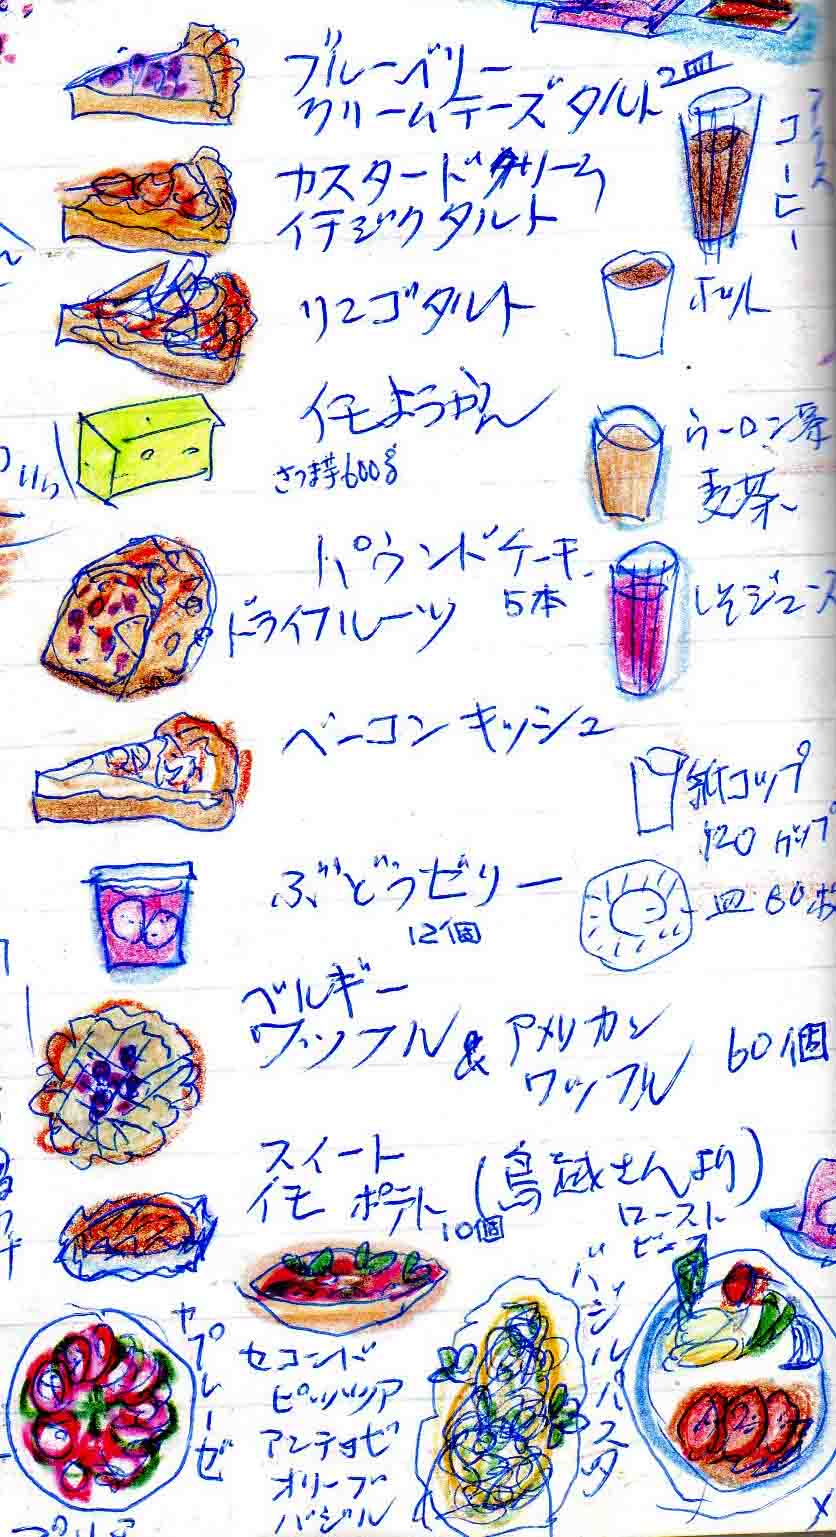 ブルーベリー
クリームチーズタルト2皿
カスタードクリーム
イチジクタルト
リンゴタルト
イモようかん
さつま芋600g
パウンドケーキ
ドライフルーツ 5本
ベーコンキッシュ
ぶどうゼリー
12個
ベルギー
ワッフル & アメリカン
ワッフル 60個
スイート
イモ ポテト (鳥越さんより)
10個
アイス
コーヒー
ホット
ウーロン茶
麦茶
しそジュース
紙コップ
120カップ
皿80
カプレーゼ
セコンド
ピッツツア
アンチョビ
オリーブ
バジル
バジルパスタ
ロースト
ビーフ